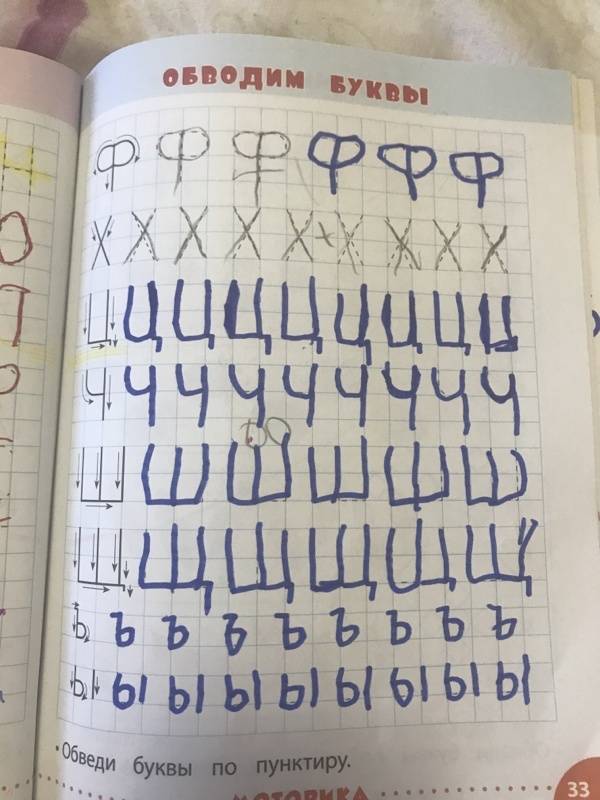 ОБВОДИМ БУКВЫ
Ф Ф Ф Ф Ф Ф
Х Х Х Х Х х Х Х Х Х
Ц Ц Ц Ц Ц Ц Ц Ц Ц
Ч Ч Ч Ч Ч Ч Ч Ч Ч
Ш Ш Ш Ш Ш Ш
Щ Щ Щ Щ Щ Щ
Ъ Ъ Ъ Ъ Ъ Ъ Ъ Ъ Ъ
Ы Ы Ы Ы Ы Ы Ы Ы Ы
• Обведи буквы по пунктиру.
МОТОРИКА
33